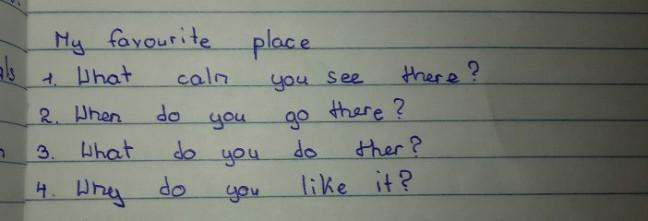 My favourite place
1. What caln you see there?
2. When do you go there?
3. What do you do ther?
4. Why do you like it?